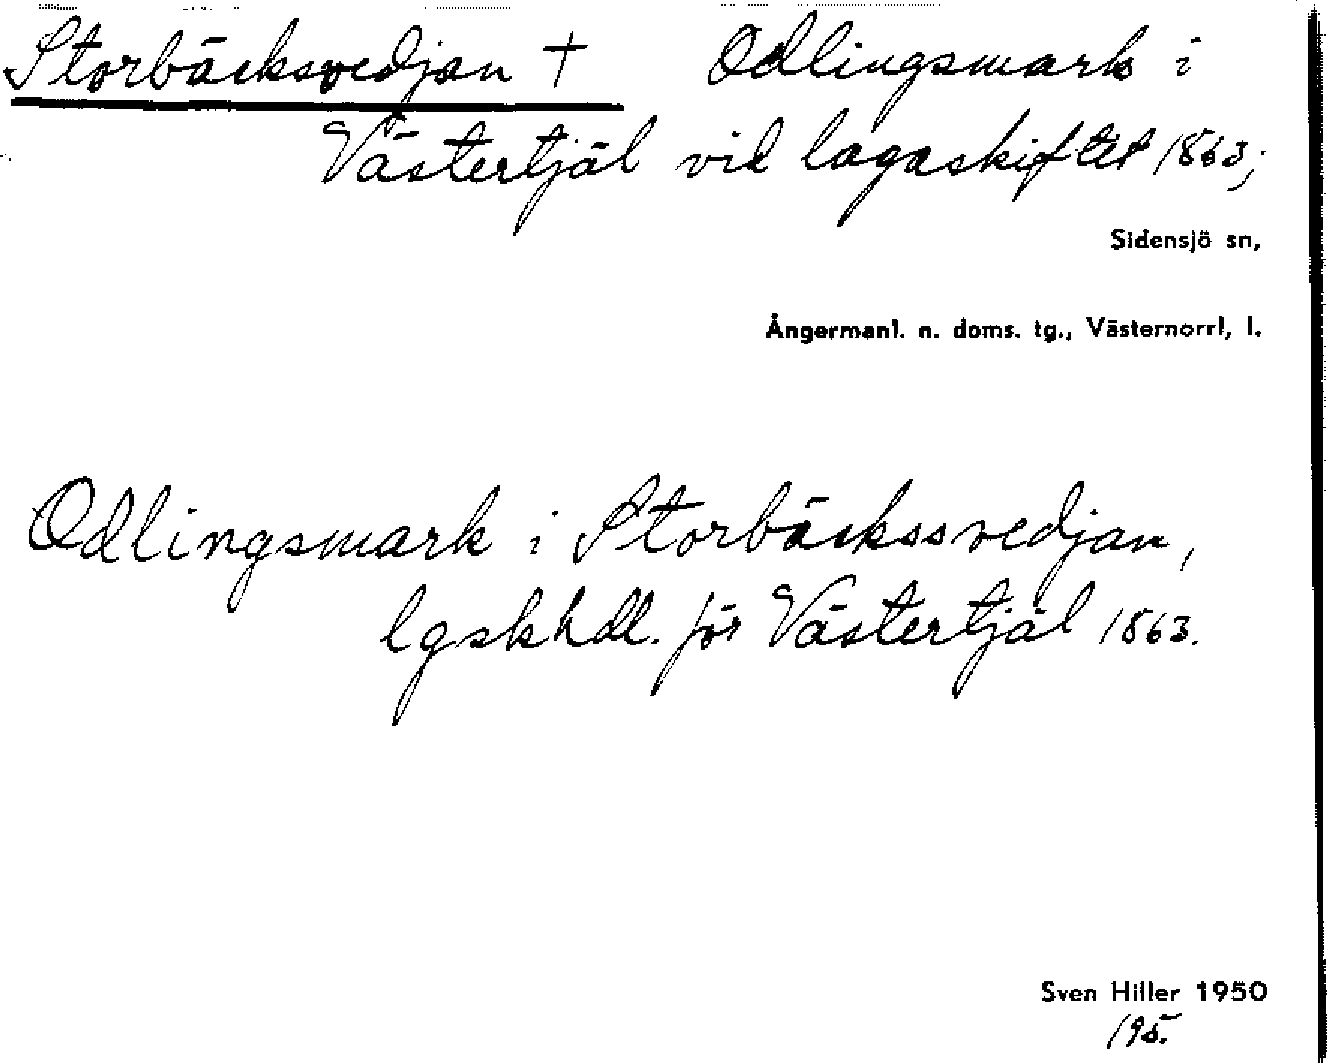 Storbäcksvedjan † Odlingsmark i
Västertjäl vid lagaskiftet 1863;
Sidensjö sn,
Ångermanl. n. doms. tg., Västernorrl, l.
Odlingsmark i Storbäckssvedjan,
lgskhdl. för Västertjäl 1863.
Sven Hiller 1950
195.